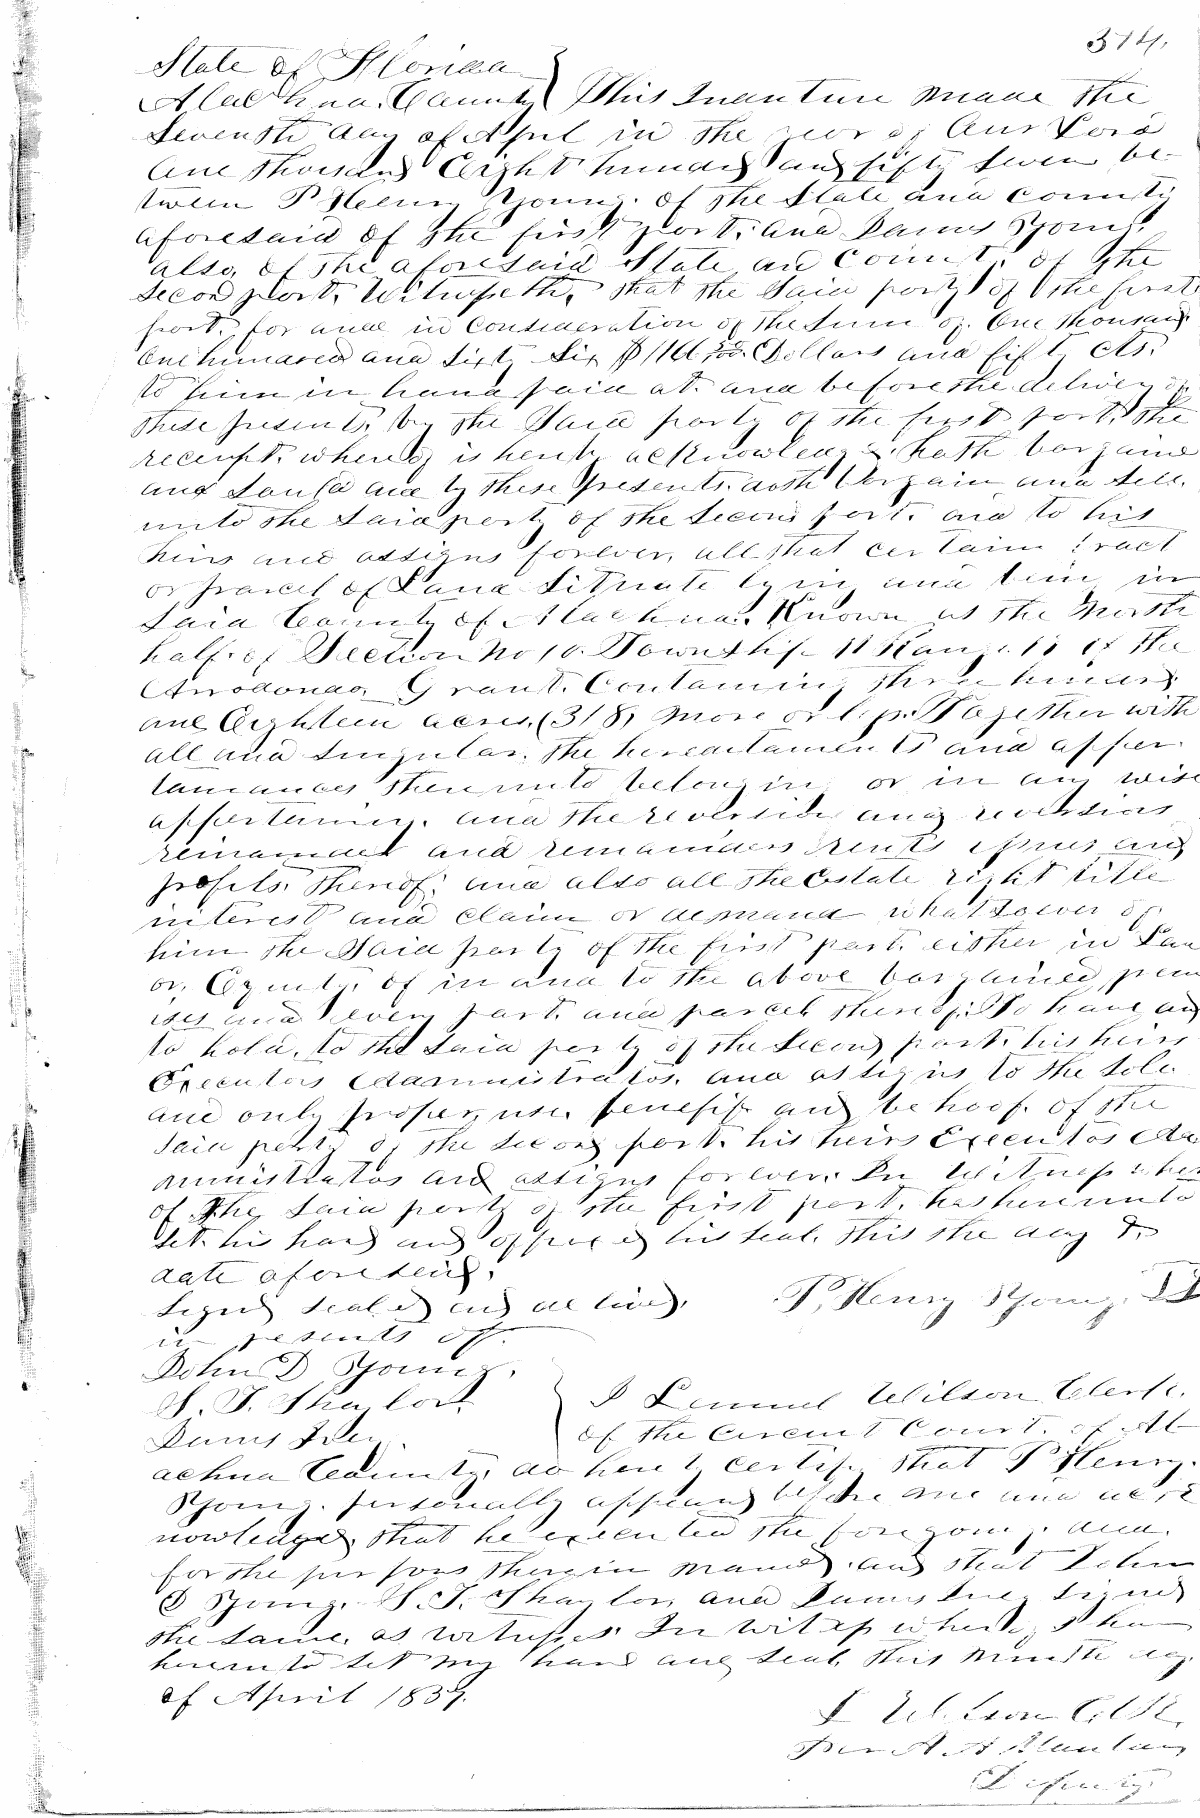 374.
State of Florida
Alachua County } This Indenture made the
Seventh day of April in the year of Our Lord
One thousand Eight hundred and fifty seven be-
tween P Henry Young. of the State and county
aforesaid of the first part. and Young,
also, of the aforesaid State and County of the
Second part. Witnesseth, that the Said party of the first
part. for and in Consideration of the Sum of. One thousand
One hundred and Sixty Six $ Dollars and fifty cts.
to him in hand paid at. and before the delivery of
these presents, by the Said party of the first part, the
receipt. whereof is hereby acknowledged. hath bargained
and Sould and by these presents. doth bargain and Sell.
unto the Said party of the Second part. and to his
heirs and assigns forever, all that certain tract
or parcel of Land Situate lying and being in
Said County of Alachua. Known as the North
half. of Section No 10. Township 11 Range of the
Arrodondo Grant. Containing three hundred
and Eighteen acres. (318) more or less. Together with
all and Singular. the hereditaments and apper
tanances thereunto belonging or in any wise
appertaining. and the reversion and reversions
remainder and remainders rents issues and
profits. thereof. and also all the Estate right title
interest and claim or demand whatsoever of
him the Said party of the first part. either in Law
or, Equity. of in and to the above bargained prem
ises and every part. and parcel thereof. To have and
to hold. to the Said party of the Second part. his heirs
Executors Administrators. and assigns to the Sole
and only proper, use. benefit and behoof. of the
Said party of the Second part. his heirs Executors Ad
ministrators and assigns forever. In Witness where
of The Said party of the first part. has hereunto
Set. his hand and affixed his Seal. this the day &
date aforesaid.
Signed Sealed and delivered. P. Henry Young.
in presents of.
John D Young.
S. T. Shaylor. } I Lemuel Wilson Clerk.
of the Circuit Court. of Al
achua County. do hereby certify that P Henry.
Young. personally appeared before me and ack
nowledged that he executed the foregoing. deed.
for the purposes therein named. and that John
D Young. S. T. Shaylor, and signed
the Same. as witnesses. In Witness whereof I have
hereunto Set my hand and Seal. this Ninth day.
of April 1857.
L Wilson Clk.
per A. A
Deputy.